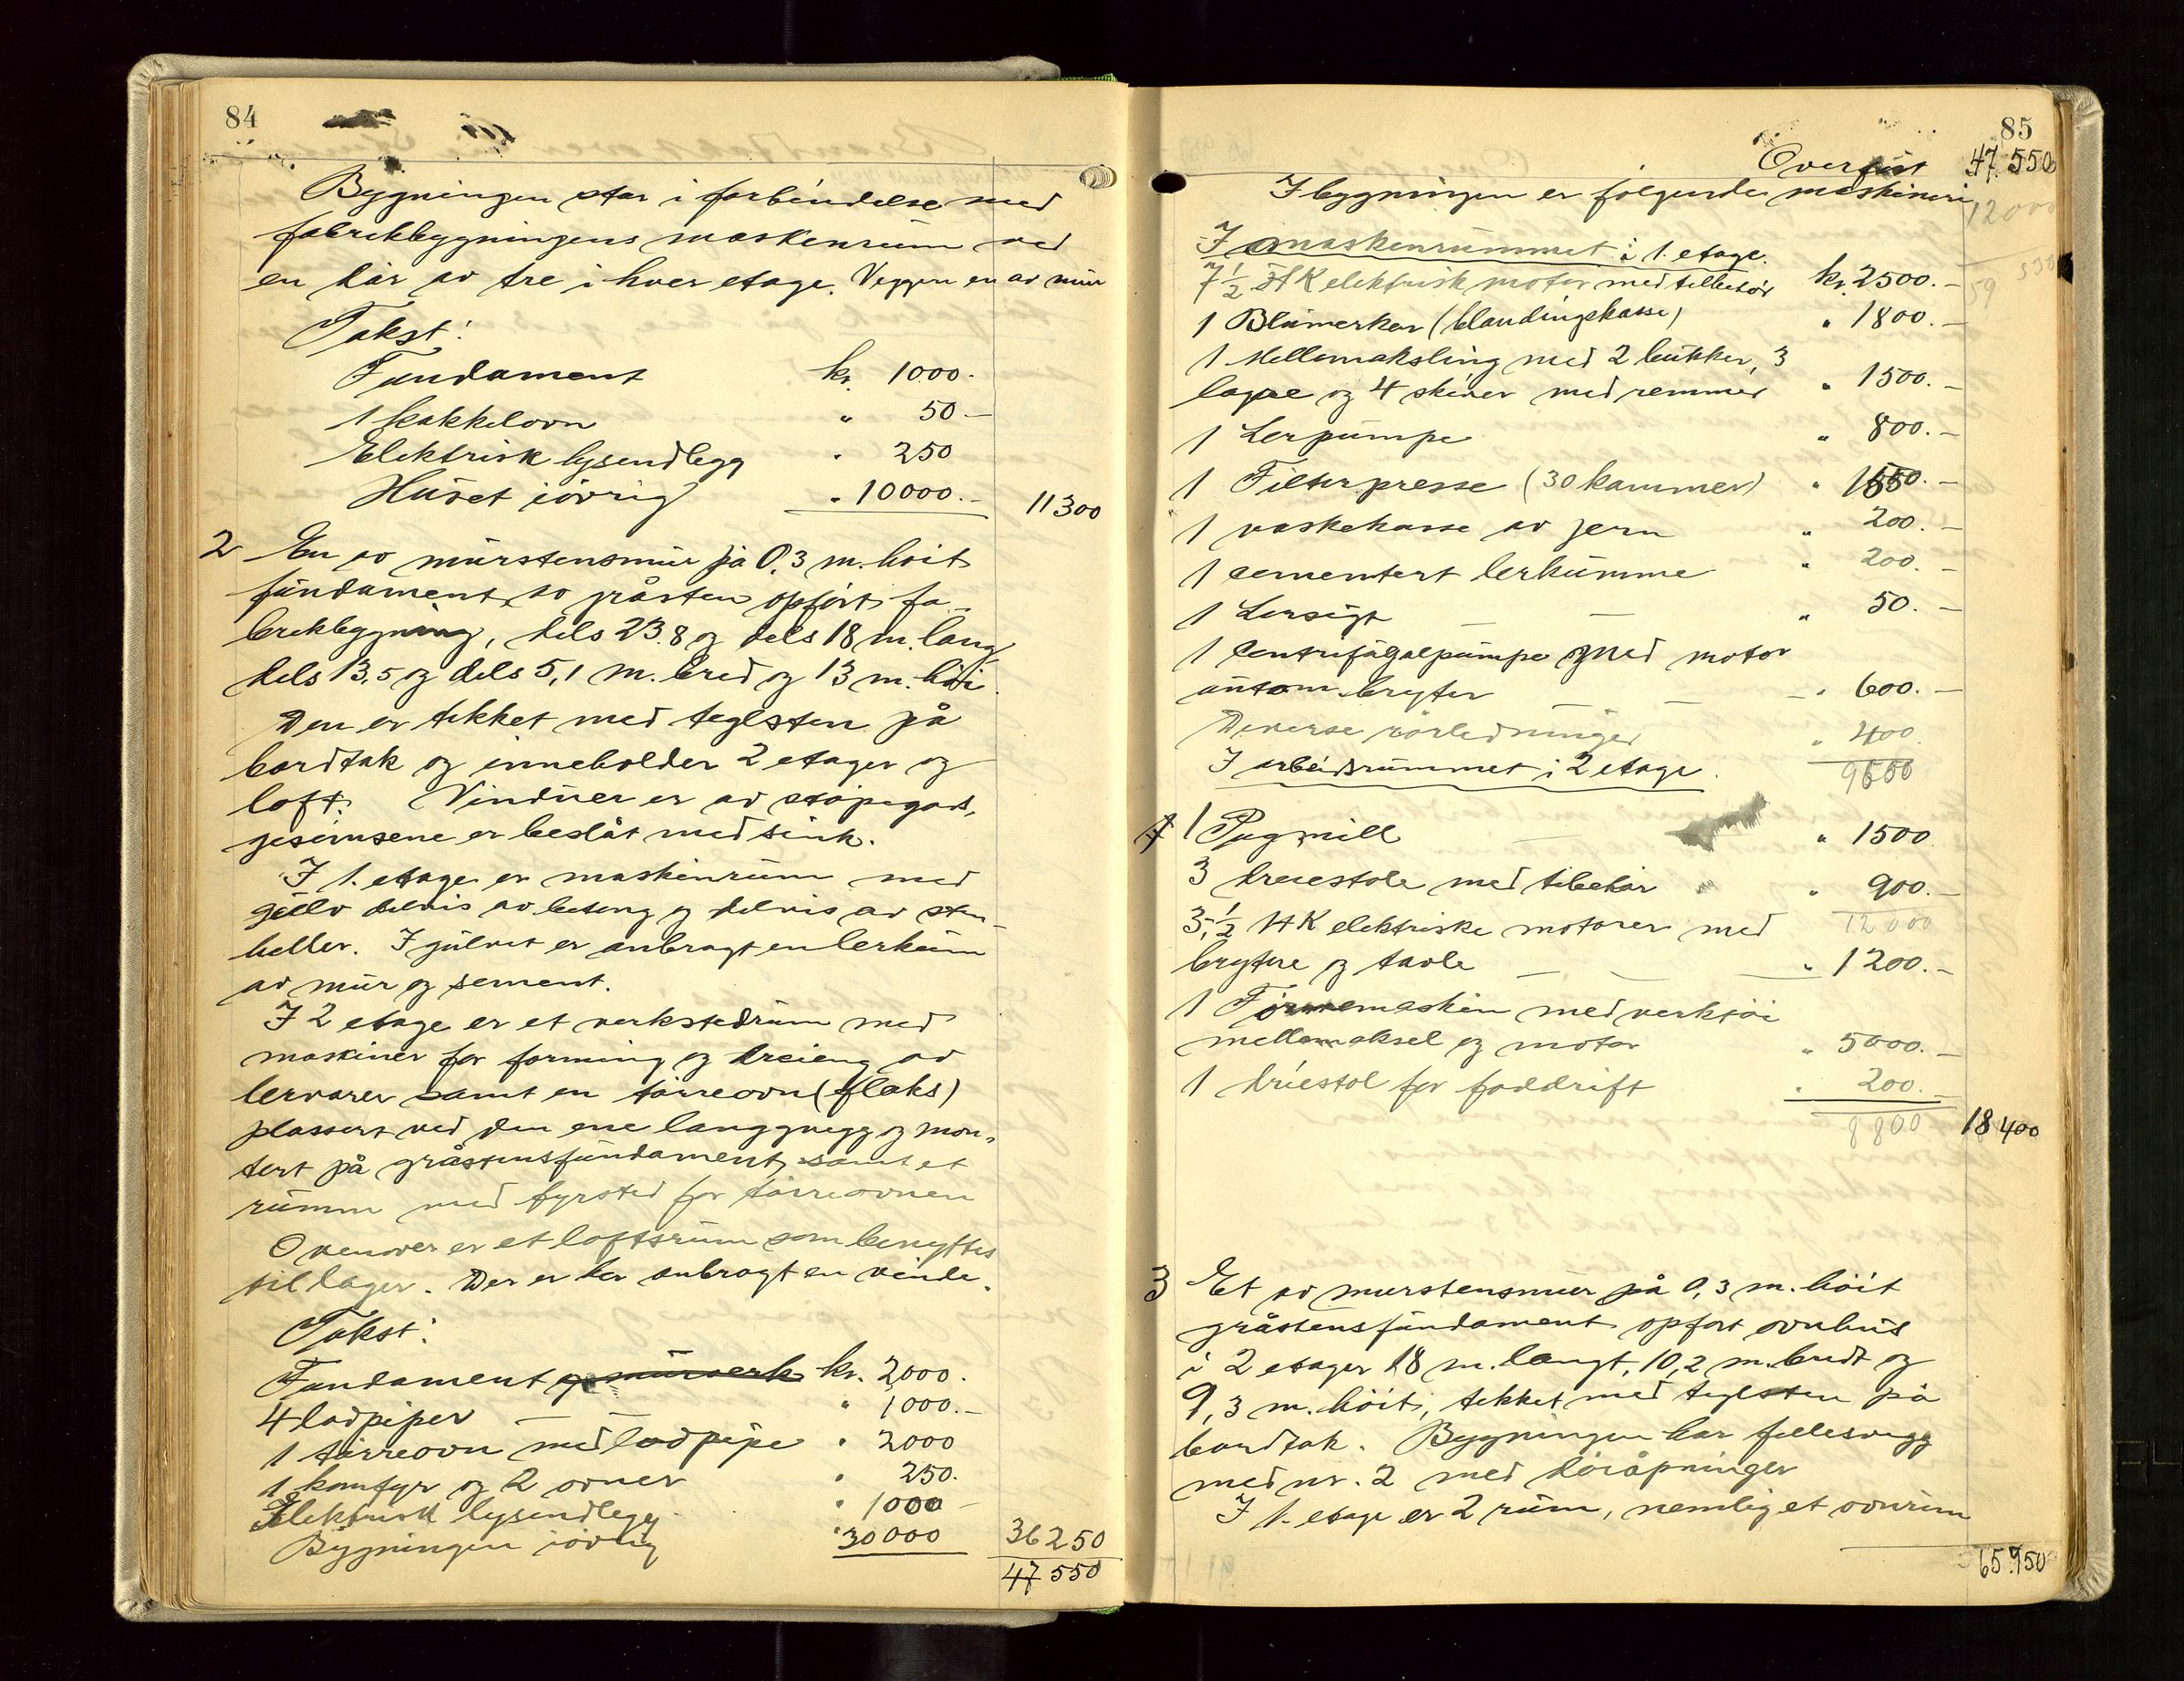 84
Bygningen star i forbindelse med
fabrikbygningens maskinrum ved
en dør av tre i hver etage. Veggen er av mur
Takst:
Fundament kr. 1000.-
1 kakkelovn " 50 -
Elektrisk lysandlegg " 250
Huset iøvrig " 10000.- 11300
2 En av murstensmur på 0,3 m. høit
fundament av gråsten opført fa-
brikbygning, dels 23.8 og dels 18 m. lang,
dels 13,5 og dels 5,1 m. bred og 13 m. høi.
Den er tekket med teglsten på
bordtak og inneholder 2 etager og
loft. Vinduer er av støpegods,
gesimsene er beslåt med sink.
I 1. etage er maskinrum med
gulv delvis av betong og delvis av sten-
heller. I gulvet er anbragt en lerkum
av mur og sement.
I 2 etage er et verkstedrum med
maskiner for forming og dreieing av
lervarer samt en tørreovn (flaks)
plassert ved den ene langvegg og mon-
tert på gråstensfundament, samt et
rumm med fyrsted for tørreovnen
Ovenover er et loftsrum som benyttes
til lager. Der er her anbragt en vinde.
Takst:
Fundament og murverk kr. 2000.
4 ladpiper " 1000.-
1 tørreovn med ladpipe " 2000
1 komfyr og 2 ovner " 250.
Elektrisk lysandlegg " 1000 -
Bygningen iøvrig " 30000 36250
47 550
85
Overført 47.550
I bygningen er følgende maskineri
12000
I maskinrummet i 1. etage.
7 1/2 HK elektrisk motor med tilbehør kr. 2500.- 59
1 Blumerkar (blandingskasse) " 1800.-
1 Mellomaksling med 2 bukker, 3
lagre og 4 skiver med remmer " 1500.-
1 Lerpumpe " 800.-
1 Filterpresse (30 kammer) " 1550.-
1 vaskekasse av jern " 200.-
1 cementert lerkumme " 200.-
1 Lersigt " 50.-
1 Centrifugalpumpe med motor
autom. bryter " 600.-
Diverse rørledninger " 400
9600
I arbeidsrummet i 2 etage.
1 Pugmill " 1500
3 dreiestole med tilbehør " 900.-
12000
3, 1/2 HK elektriske motorer med
brytere og tavle " 1200.-
1 Formemaskin med verktøi
mellemaksel og motor " 5000.-
1 driestol for foddrift " 200.-
8800 18 400
3 Et av murstensmur på 0,3 m. høit
gråstensfundament opført ovnhus
i 2 etager 18 m. langt, 10,2 m. bredt og
9,3 m. høit, tekket med teglsten på
bordtak. Bygningen har fellesvegg
med nr. 2 med døråpninger
I 1. etage er 2 rum, nemlig et ovnrum
65.950